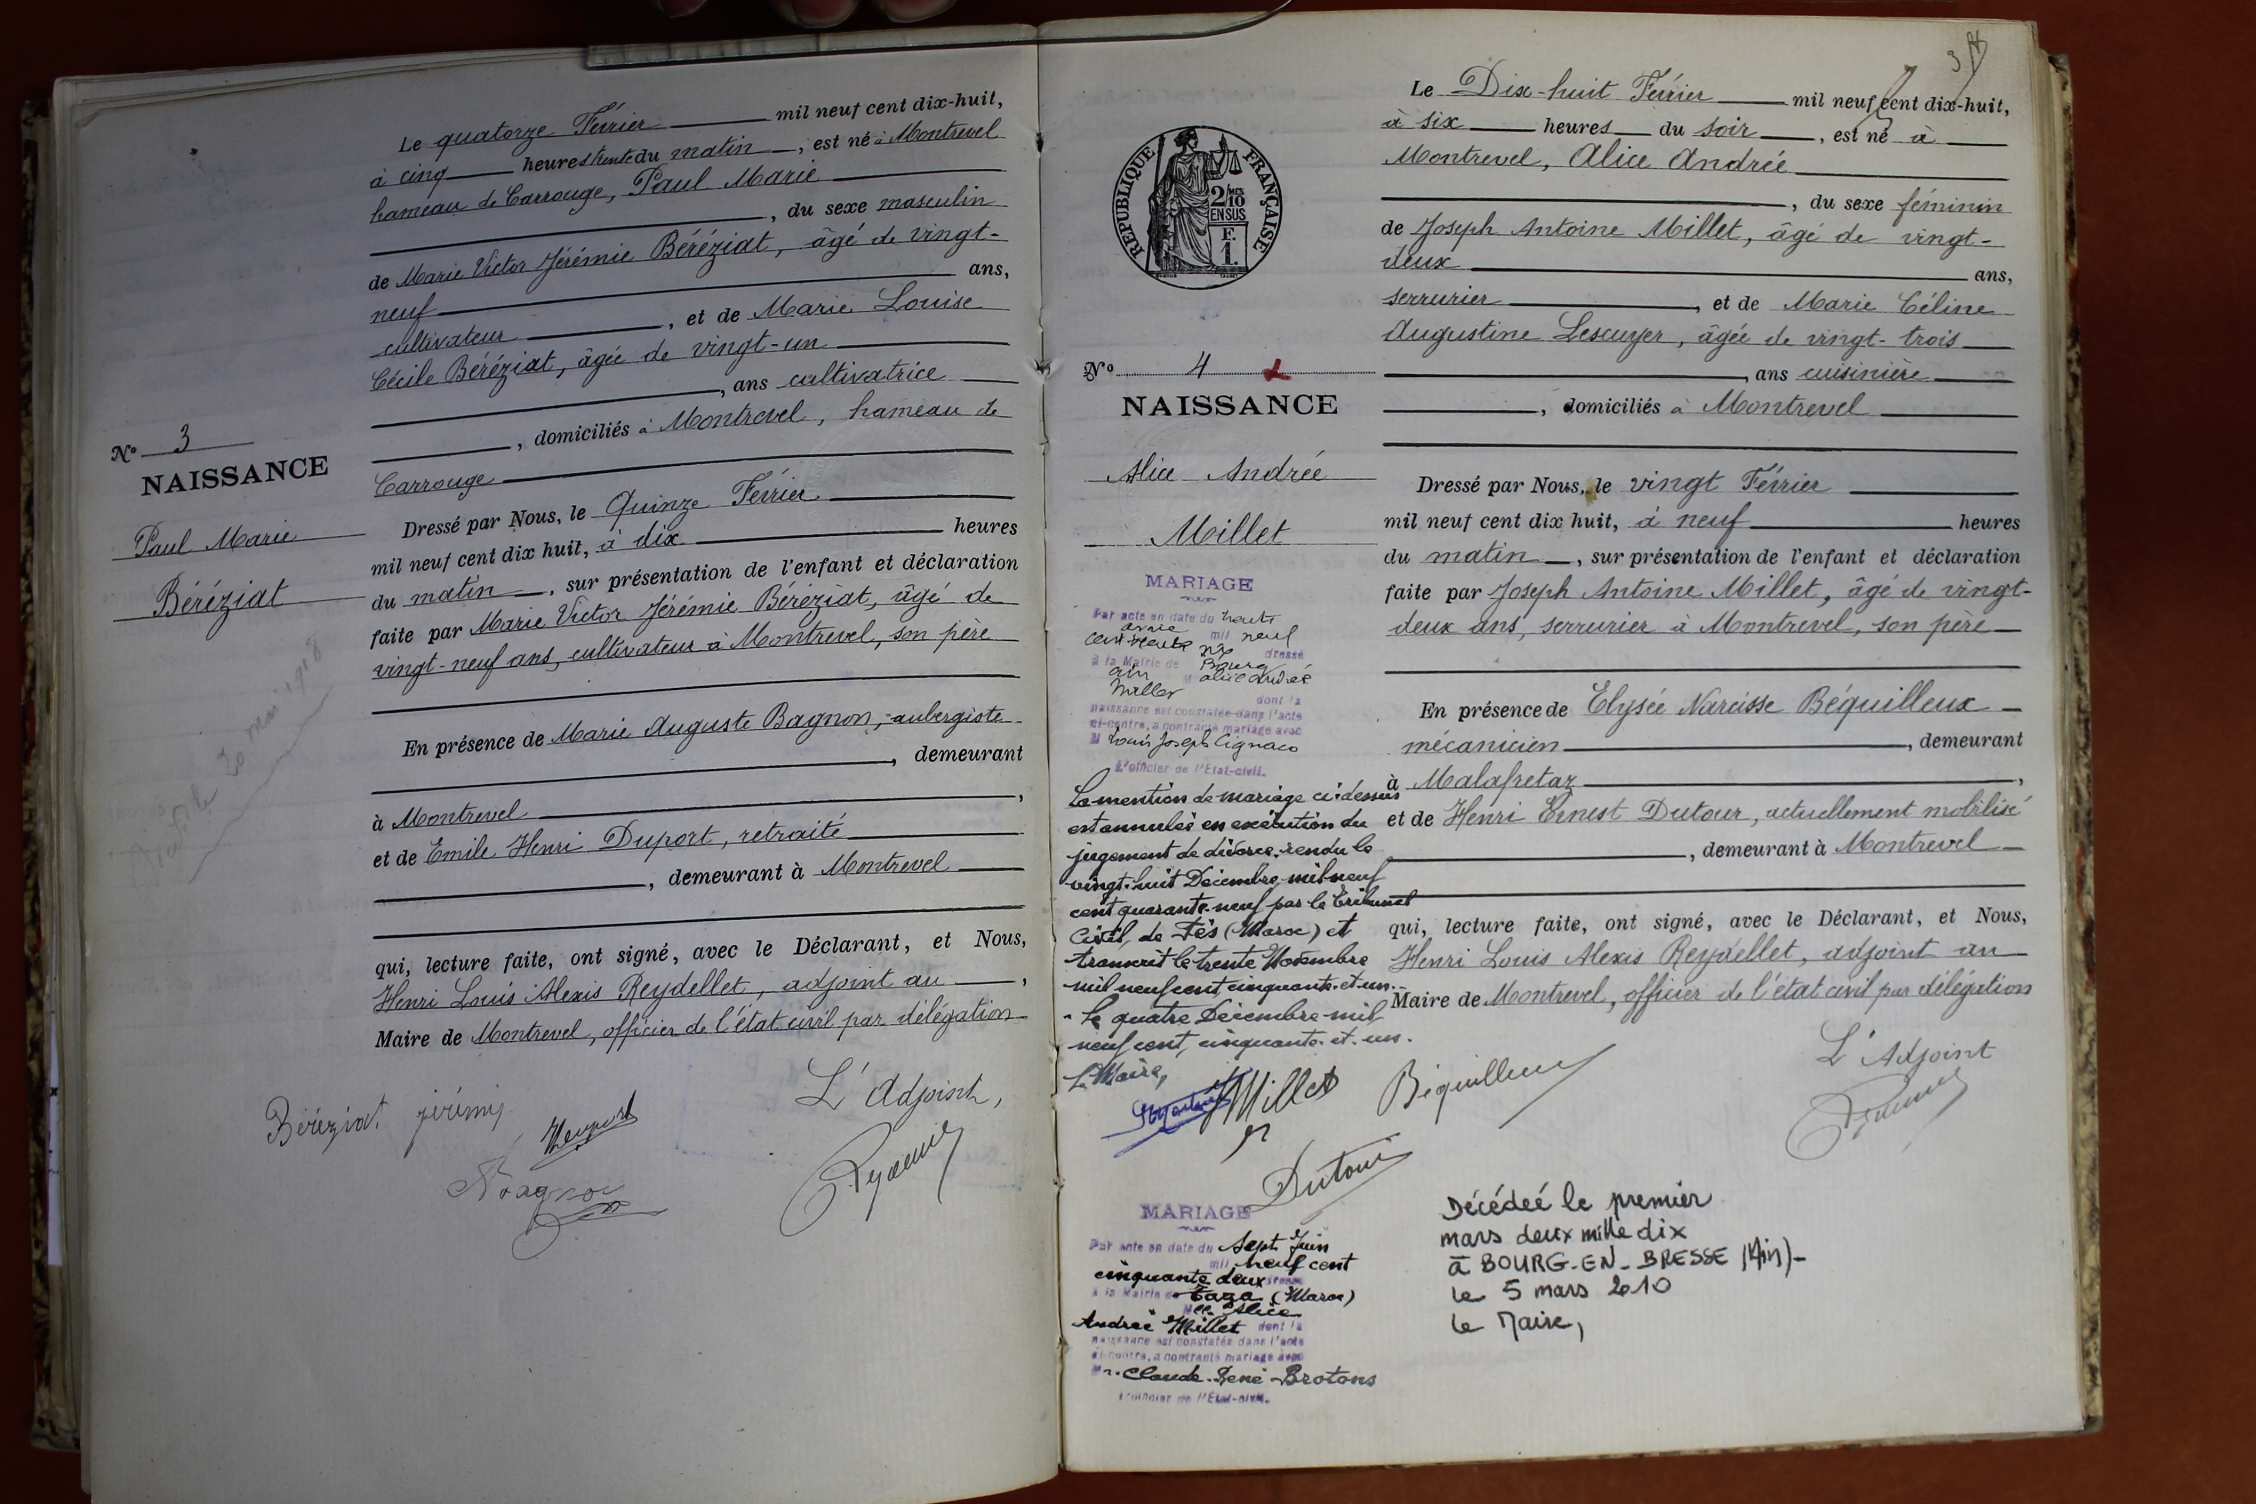 Le quatorze Février mil neuf cent dix-huit,
à cinq heures trente du matin, est né à Montrevel
hameau de Carrouge, Paul Marie
, du sexe masculin
de Marie Victor Jérémie Béréziat, âgé de vingt-
neuf ans,
cultivateur, et de Marie Louise
Cécile Béréziat, âgée de vingt-un
, ans cultivatrice
, domiciliés à Montrevel, hameau de
Carrouge
Nº 3
NAISSANCE
Paul Marie
Béréziat
20 mai 1918
Dressé par Nous, le Quinze Février
mil neuf cent dix huit, à dix heures
du matin, sur présentation de l'enfant et déclaration
faite par Marie Victor Jérémie Béréziat, âgé de
vingt-neuf ans, cultivateur à Montrevel, son père
En présence de Marie Auguste Bagnon, aubergiste
, demeurant
à Montrevel,
et de Emile Henri Duport, retraité
, demeurant à Montrevel
qui, lecture faite, ont signé, avec le Déclarant, et Nous,
Henri Louis Alexis Reydellet, adjoint au,
Maire de Montrevel, officier de l'état civil par délégation
L'Adjoint,
Béréziat jérémy
3
Le Dix-huit Février mil neuf cent dix-huit,
à six heures du soir, est né à
Montrevel, Alice Andrée
, du sexe féminin
de Joseph Antoine Millet, âgé de vingt-
deux ans,
serrurier, et de Marie Céline
Augustine Lescuyer, âgée de vingt-trois
, ans cuisinière
, domiciliés à Montrevel
RÉPUBLIQUE FRANÇAISE
2/10
EN SUS
F.
1.
Nº 4
NAISSANCE
Alice Andrée
Millet
Dressé par Nous, le vingt Février
mil neuf cent dix huit, à neuf heures
du matin, sur présentation de l'enfant et déclaration
faite par Joseph Antoine Millet, âgé de vingt-
deux ans, serrurier à Montrevel, son père
En présence de Elysée Narcisse Béquilleux
mécanicien, demeurant
à Malafretaz,
et de Henri Ernest Dutour, actuellement mobilisé
, demeurant à Montrevel
qui, lecture faite, ont signé, avec le Déclarant, et Nous,
Henri Louis Alexis Reydellet, adjoint au
Maire de Montrevel, officier de l'état civil par délégation
L'Adjoint
MARIAGE
Par acte en date du
mil neuf
cent trente dressé
à la Mairie de Bourg
Ain M Alice Andrée
Millet dont la
naissance est constatée dans l'acte
ci-contre, a contracté mariage avec
M Louis Joseph Cignaco
L'officier de l'Etat-civil.
La mention de mariage ci-dessus
est annulée en exécution du
jugement de divorce rendu le
vingt-huit Décembre mil neuf
cent quarante-neuf par le Tribunal
Civil, de Fès (Maroc) et
transcrit le trente Novembre
mil neuf cent cinquante-et-un.
Le quatre Décembre mil
neuf cent, cinquante-et-un.
Le Maire,
Millet
Béquilleux
Dutour
MARIAGE
Par acte en date du Sept Juin
mil neuf cent
cinquante deux dressé
à la Mairie de Taza (Maroc)
Mlle Alice
Andrée Millet dont la
naissance est constatée dans l'acte
ci-contre, a contracté mariage avec
Mr. Claude René Brotons
L'officier de l'Etat-civil.
Décédée le premier
mars deux mille dix
à BOURG-EN-BRESSE (Ain)-
le 5 mars 2010
le Maire,